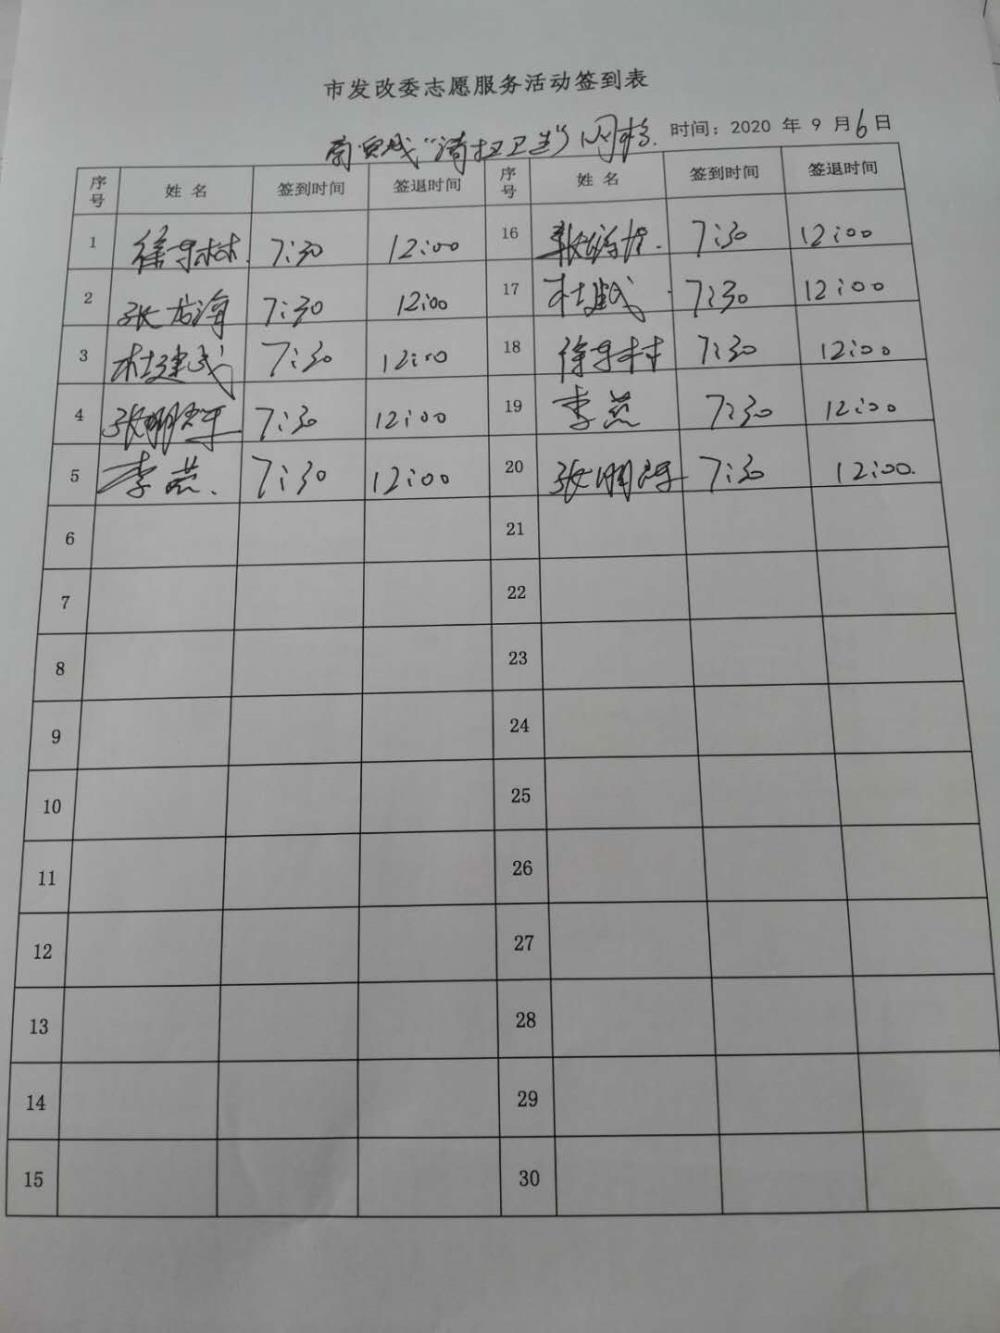 市发改委志愿服务活动签到表
卫生” 网格. 时间：2020 年 9 月6日
序号 姓 名 签到时间 签退时间 序号 姓 名 签到时间 签退时间
1 7:30 12:00 16 7:30 12:00
2 张 海 7:30 12:00 17 杜建武 7:30 12:00
3 杜建武 7:30 12:00 18 徐 村 7:30 12:00
4 张 7:30 12:00 19 李燕 7:30 12:00
5 李燕. 7:30 12:00 20 张 7:30 12:00.
6 21
7 22
8 23
9 24
10 25
11 26
12 27
13 28
14 29
15 30